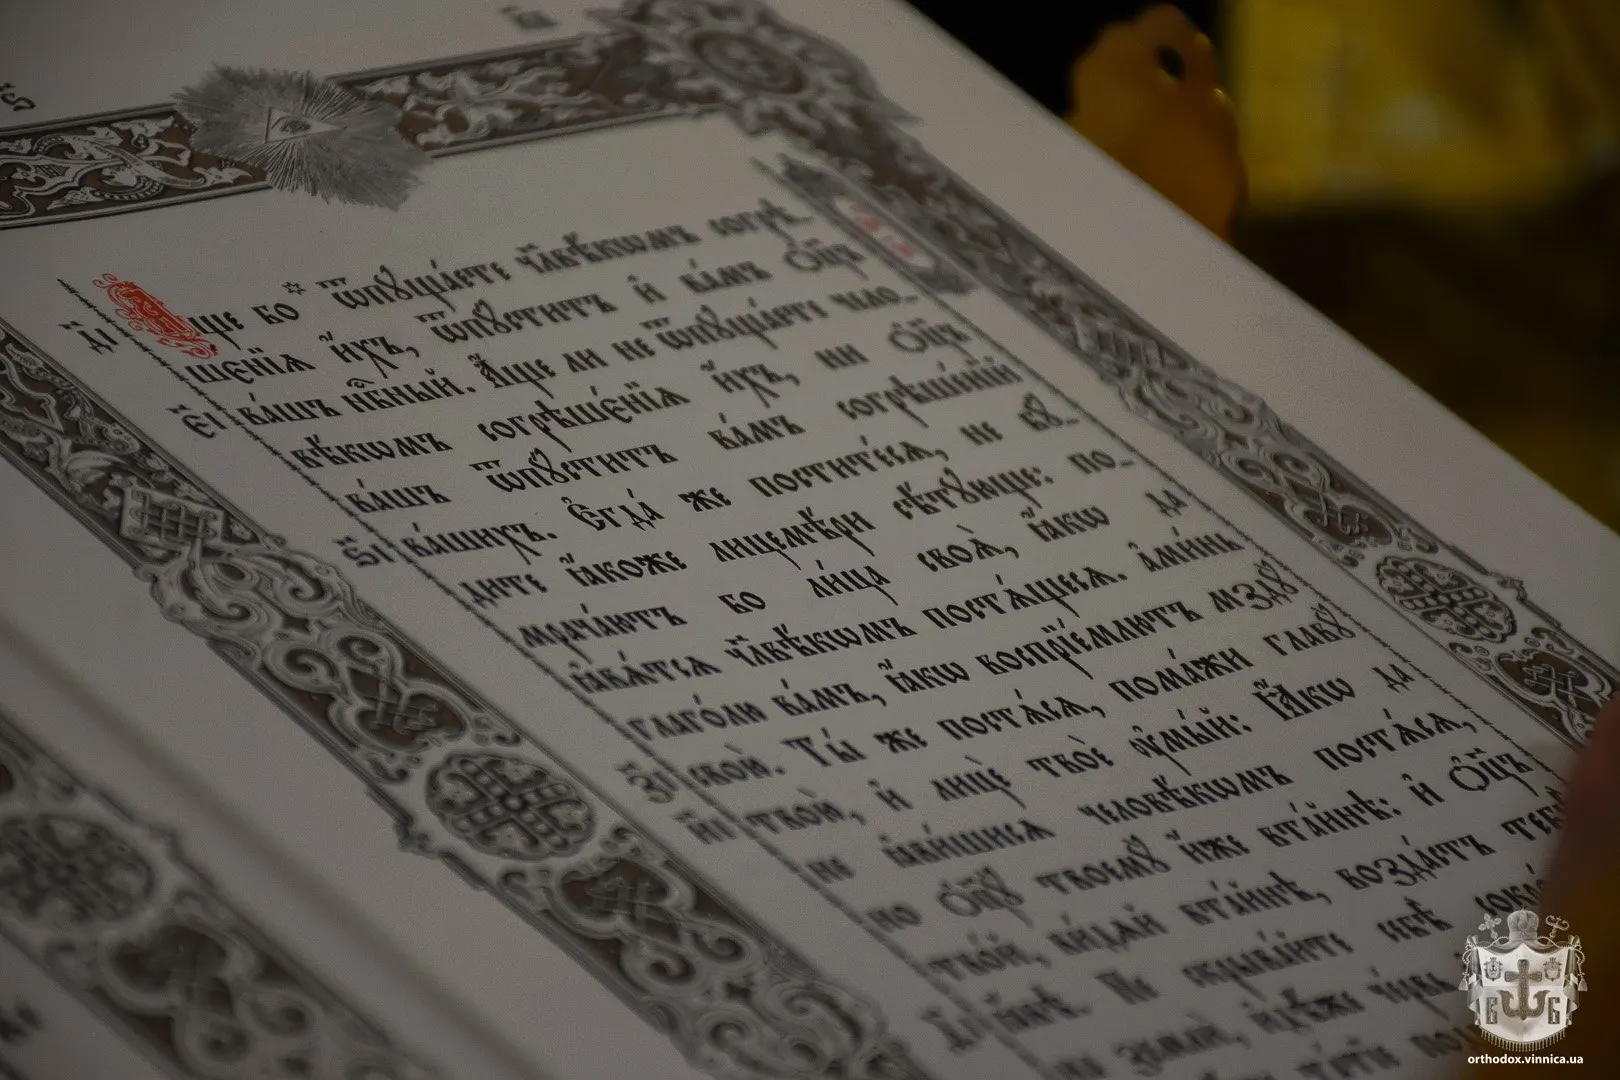 А҆́ще бо ѿпꙋща́ете чл҃вѣ́кѡмъ согрѣ_
ше́нїѧ и҆́хъ, ѿпꙋ́ститъ и҆ ва́мъ ѻ҆ц҃ъ
є҃і ва́шъ нбⷭ҇ный. А҆́ще ли не ѿпꙋща́ете чело_
вѣ́кѡмъ согрѣшє́нїѧ и҆́хъ, ни ѻ҆ц҃ъ
ва́шъ ѿпꙋ́ститъ ва́мъ согрѣше́нїй
ѕ҃і ва́шихъ. Є҆гда́ же постите́сѧ, не бꙋ́_
дите ꙗ҆́коже лицемѣ́ри сѣ́тꙋюще: по_
мрача́ютъ бо ли́ца своѧ҄, ꙗ҆́кѡ да
ꙗ҆вѧ́тсѧ чл҃вѣ́кѡмъ постѧ́щесѧ. а҆ми́нь
глаго́лю ва́мъ, ꙗ҆́кѡ воспрїе́млютъ мздꙋ̀
з҃і свою̀. Ты́ же постѧ́сѧ, пома́жи главꙋ̀
и҃і твою̀, и҆ лицѐ твоѐ ᲂу҆мы́й: Ꙗ҆́кѡ да
не ꙗ҆ви́шисѧ человѣ́кѡмъ постѧ́сѧ,
но ѻ҆ц҃ꙋ̀ твоемꙋ̀ и҆́же вта́йнѣ: и҆ ѻ҆ц҃ъ
тво́й, ви́дѧй вта́йнѣ, возда́стъ тебѣ̀
Не скрыва́йте себѣ̀
на землѝ, и҆дѣ́же че́рвь
orthodox.vinnica.ua